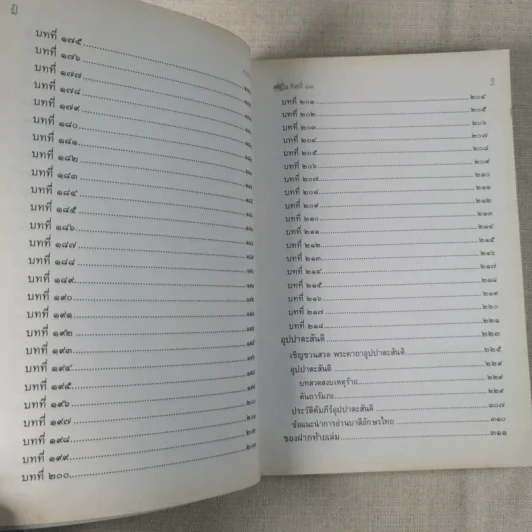 บทที่ ๑๗๕
บทที่ ๑๗๖
บทที่ ๑๗๗
บทที่ ๑๗๘
บทที่ ๑๗๙
บทที่ ๑๘๐
บทที่ ๑๘๑
บทที่ ๑๘๒
บทที่ ๑๘๓
บทที่ ๑๘๔
บทที่ ๑๘๕
บทที่ ๑๘๖
บทที่ ๑๘๗
บทที่ ๑๘๘
บทที่ ๑๘๙
บทที่ ๑๙๐
บทที่ ๑๙๑
บทที่ ๑๙๒
บทที่ ๑๙๓
บทที่ ๑๙๔
บทที่ ๑๙๕
บทที่ ๑๙๖
บทที่ ๑๙๗
บทที่ ๑๙๘
บทที่ ๑๙๙
บทที่ ๒๐๐
บทที่ ๒๐๑ ๒๐๔
บทที่ ๒๐๒ ๒๐๕
บทที่ ๒๐๓ ๒๐๖
บทที่ ๒๐๔ ๒๐๗
บทที่ ๒๐๕ ๒๐๘
บทที่ ๒๐๖ ๒๐๙
บทที่ ๒๐๗ ๒๑๐
บทที่ ๒๐๘ ๒๑๑
บทที่ ๒๐๙ ๒๑๒
บทที่ ๒๑๐ ๒๑๓
บทที่ ๒๑๑ ๒๑๔
บทที่ ๒๑๒ ๒๑๕
บทที่ ๒๑๓ ๒๑๖
บทที่ ๒๑๔ ๒๑๗
บทที่ ๒๑๕ ๒๑๘
บทที่ ๒๑๖ ๒๑๙
บทที่ ๒๑๗ ๒๒๐
บทที่ ๒๑๘ ๒๒๑
อุปปาตะสันติ ๒๒๓
เชิญชวนสวด พระคาถาอุปปาตะสันติ ๒๒๕
อุปปาตะสันติ
บทสวดสงบเหตุร้าย ๒๒๙
คันถารัมภะ ๒๒๙
ประวัติคัมภีร์อุปปาตะสันติ ๓๐๗
ข้อแนะนำการอ่านบาลีอักษรไทย ๓๑๐
ของฝากท้ายเล่ม ๓๑๑